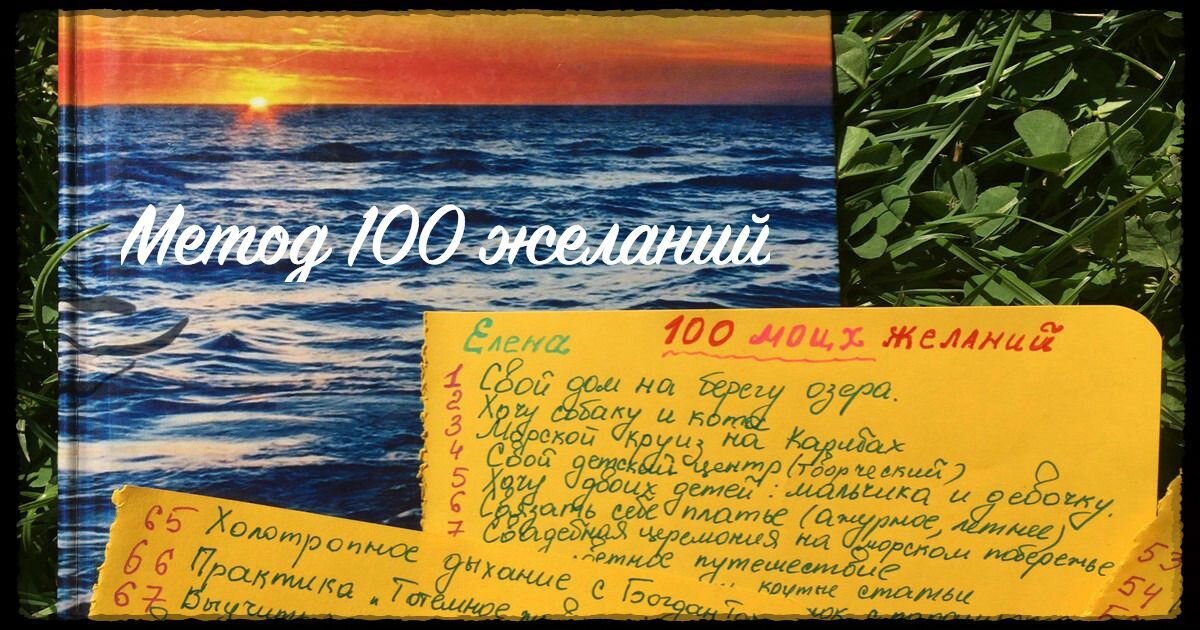 Метод 100 желаний
Елена 100 моих желаний
1 Свой дом на берегу озера.
2 Хочу собаку и кота
3 Морской круиз на Карибах
4 Свой детский центр (творческий)
5 Хочу двоих детей: мальчика и девочку.
6 Связать себе платье (ажурное, летнее)
7 Свадебная церемония на морском побережье
путешествие
крутые статьи
65 Холотропное дыхание с Богдан
66 Практика "Тотемное
67 Выучить
53
54